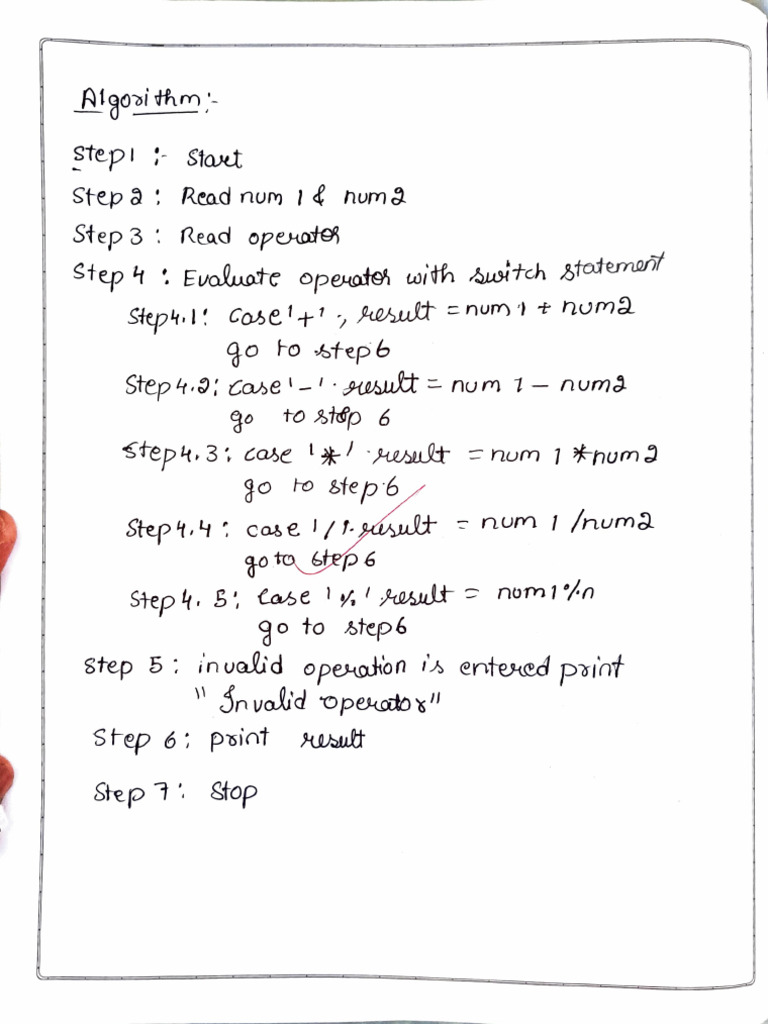 Algorithm:-
Step1 :- Start
Step 2 : Read num 1 & num2
Step 3 : Read operator
Step 4 : Evaluate operator with switch statement
Step4.1: case '+' ., result = num 1 + num2
go to step 6
Step 4.2: case '-' . result = num 1 - num2
go to step 6
Step 4.3: case '*' . result = num 1 * num2
go to step 6
Step 4.4 : case '/'. result = num 1 /num2
go to step 6
Step 4.5: case '%' . result = num1%n
go to step6
Step 5 : invalid operation is entered print
" Invalid operator"
Step 6: print result
Step 7: Stop